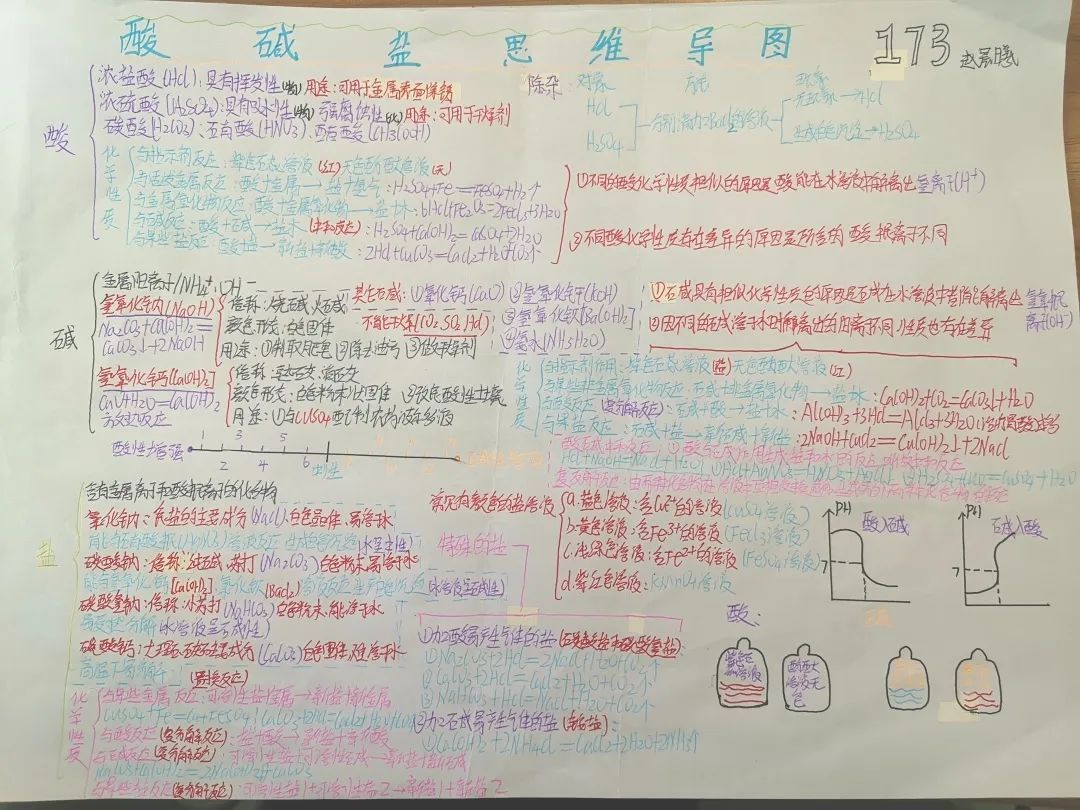 酸 碱 盐 思 维 导 图
173
酸
浓盐酸(HCl):具有挥发性(物) 用途:可用于金属表面除锈
浓硫酸(H₂SO₄):具有吸水性(物) 强腐蚀性(化) 用途:可用于干燥剂
碳酸(H₂CO₃)、硝酸(HNO₃)、醋酸(CH₃COOH)
除杂: 对象 方法 现象
HCl
H₂SO₄
无现象→HCl
生成白色沉淀→H₂SO₄
化学性质
与指示剂反应:紫色石蕊溶液(红)无色酚酞溶液(无)
与活泼金属反应:酸+金属→盐+氢气:H₂SO₄+Fe=FeSO₄+H₂↑
与金属氧化物反应:酸+金属氧化物→盐+水:6HCl+Fe₂O₃=2FeCl₃+3H₂O
与碱反应:酸+碱→盐+水(中和反应):H₂SO₄+Ca(OH)₂=CaSO₄+2H₂O
与某些盐反应:酸+盐→新盐+新酸:2HCl+CaCO₃=CaCl₂+H₂O+CO₂↑
①不同的酸化学性质相似的原因是酸能在水溶液中解离出氢离子(H⁺)
②不同酸化学性质存在差异的原因是所含的酸根离子不同
碱
金属阳离子/NH₄⁺、OH⁻
氢氧化钠(NaOH)
Na₂CO₃+Ca(OH)₂=
CaCO₃↓+2NaOH
俗称:烧碱、火碱
颜色形状:白色固体
用途:①制取肥皂 ②除去油污 ③做干燥剂
不能干燥(CO₂、SO₂、HCl)
氢氧化钙[Ca(OH)₂]
CaO+H₂O=Ca(OH)₂
颜色形状:白色粉末状固体
③改良酸性土壤
用途:①与CuSO₄配制农药波尔多液
其它碱:①氧化钙(CaO) ②氢氧化钾(KOH)
③氢氧化钡[Ba(OH)₂]
④氨水(NH₃·H₂O)
①碱具有相似化学性质的原因是碱在水溶液中都能解离出氢氧根离子(OH⁻)
②因不同的碱溶于水时解离出的阳离子不同,性质也存在差异
化学性质
与指示剂作用:紫色石蕊溶液(蓝)无色酚酞溶液(红)
与某些非金属氧化物反应:碱+非金属氧化物→盐+水:Ca(OH)₂+CO₂=CaCO₃↓+H₂O
与酸反应(复分解反应):碱+酸→盐+水:Al(OH)₃+3HCl=AlCl₃+3H₂O
与某盐反应:碱+盐→新碱+新盐:2NaOH+CuCl₂=Cu(OH)₂↓+2NaCl
酸性增强
1 3 5
2 4 6
中性
盐
含有金属离子和酸根离子的化合物
氯化钠:食盐的主要成分(NaCl)、白色晶体、易溶于水
(水呈中性)
碳酸钠:俗称:纯碱、苏打(Na₂CO₃)白色粉末、易溶于水
(水溶液呈碱性)
碳酸氢钠:俗称:小苏打(NaHCO₃)、白色粉末、能溶于水
易受热分解(水溶液呈弱碱性)
碳酸钙:大理石、石灰石主要成分(CaCO₃)白色固体、难溶于水
高温下易分解
(置换反应)
化学性质
与某些金属反应:可溶性盐+金属→新盐+新金属
与酸反应(复分解反应):盐+酸→新盐+新酸
与碱反应(复分解反应):可溶性盐+可溶性碱→新盐+新碱
与某些盐反应(复分解反应):可溶性盐1+可溶性盐2→新盐1+新盐2
常见有颜色的盐溶液
a.蓝色溶液:含Cu²⁺的溶液(CuSO₄溶液)
b.黄色溶液:含Fe³⁺的溶液(FeCl₃溶液)
c.浅绿色溶液:含Fe²⁺的溶液(FeSO₄溶液)
d.紫红色溶液:KMnO₄溶液
特殊的盐
(1)加酸易产生气体的盐(碳酸盐和碳酸氢盐):
①Na₂CO₃+2HCl=2NaCl+H₂O+CO₂↑
②CaCO₃+2HCl=CaCl₂+H₂O+CO₂↑
③NaHCO₃+HCl=NaCl+H₂O+CO₂↑
(2)加碱易产生气体的盐(铵盐):
①Ca(OH)₂+2NH₄Cl=CaCl₂+2H₂O+2NH₃↑
PH 酸入碱
7
PH 碱入酸
7
酸:
酚酞
溶液无
色